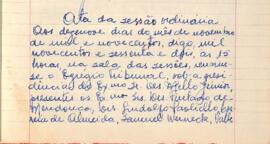 Ata da sessão ordinária
Aos dezenove dias do mês de novembro
de mil e novecentos, digo, mil
novecentos e sessenta e dois, às 15
horas, na sala das sessões, reuniu-
se o Egrégio Tribunal, sob a presi-
dência do Exmo Sr. Des. Júnior,
presentes os Exmos Srs. Des. Furtado de
Mendonça, Des. Lindolfo
de Almeida, Samuel Werneck,